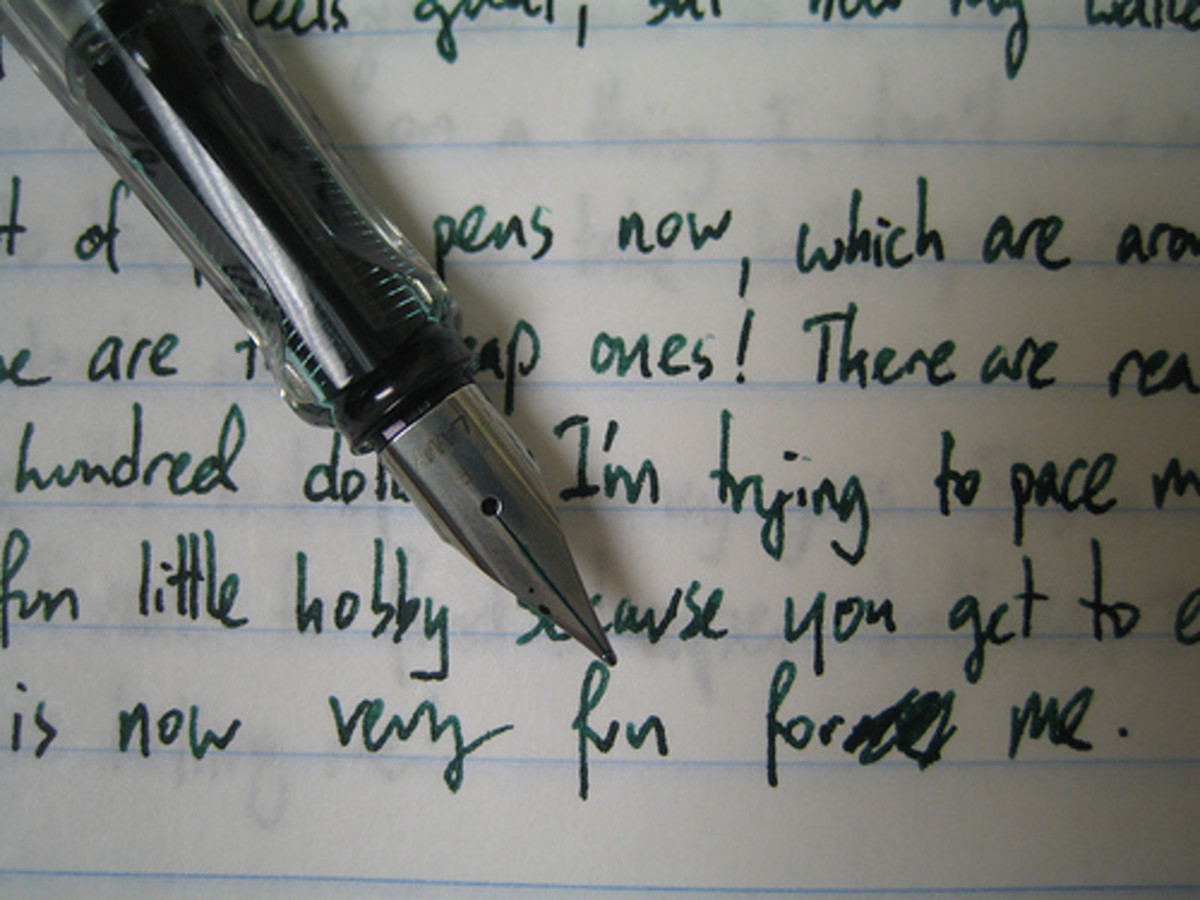 good, but now my
t of pens now, which are
are ones! There are
hundred I'm trying to pace
fun little hobby because you get to
is now very fun for me.